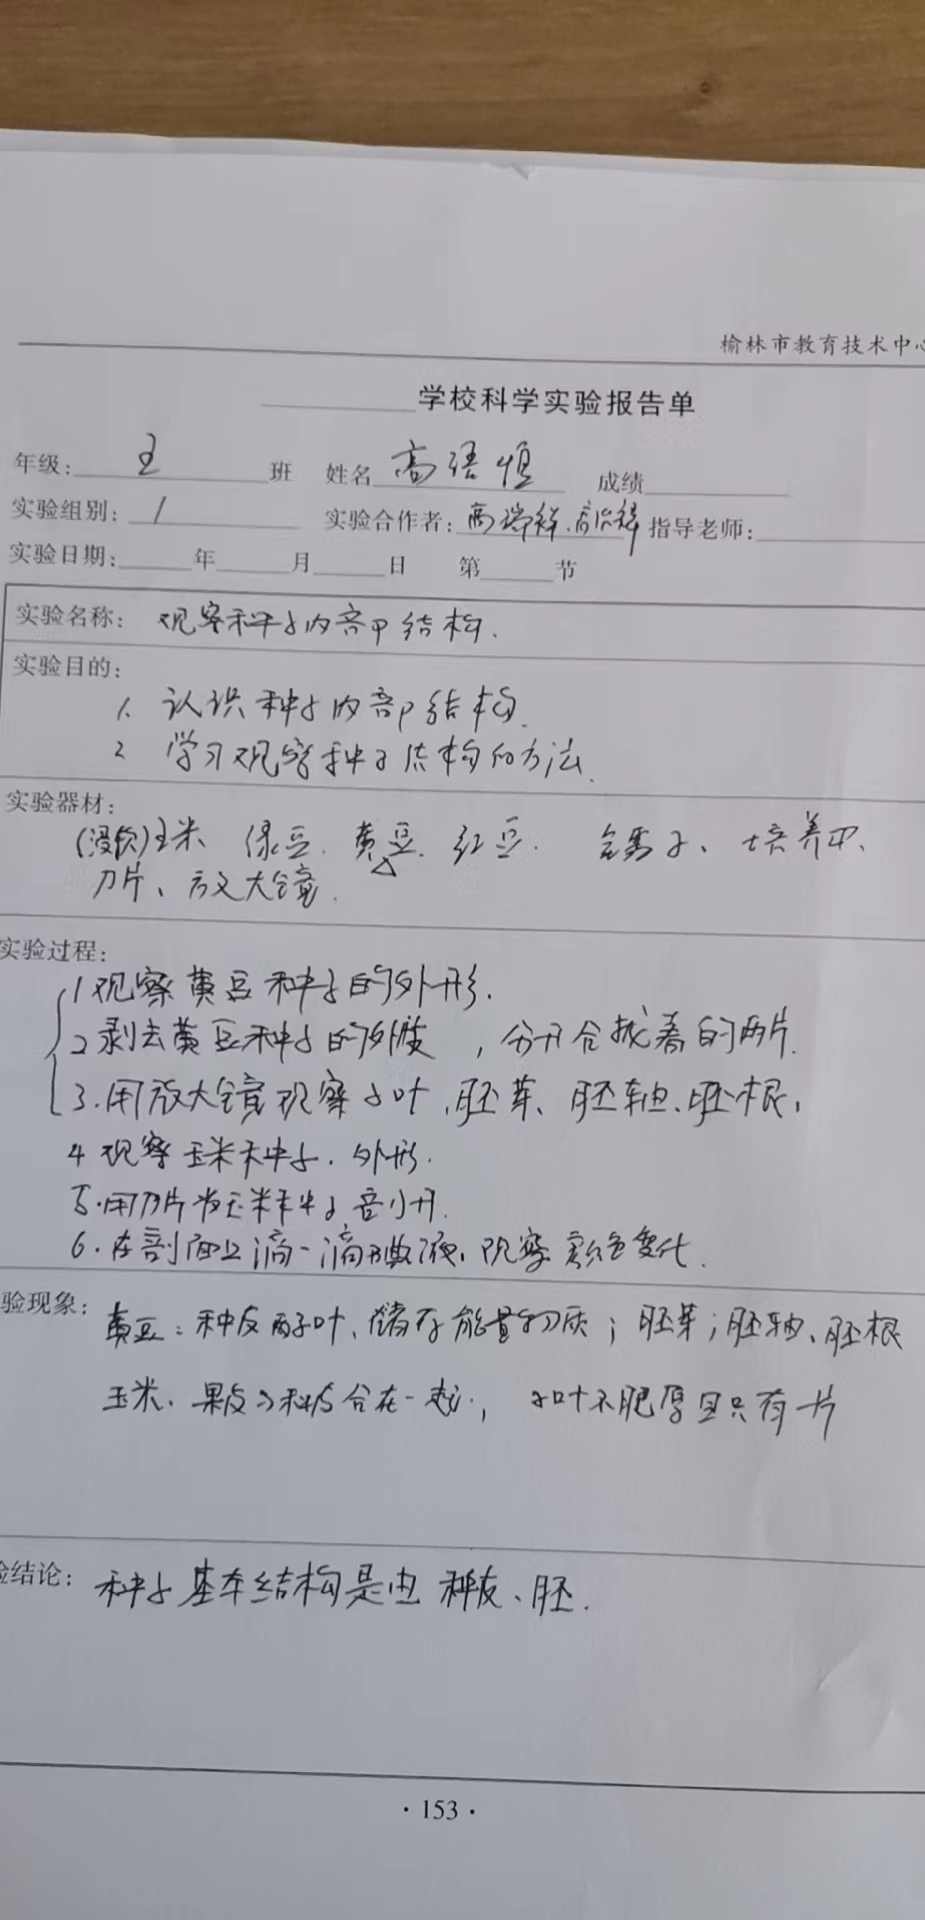 榆林市教育技术中心
学校科学实验报告单
年级: 班 姓名 高语恒 成绩
实验组别: 1 实验合作者: 高瑞祥、高浩祥 指导老师:
实验日期: 年 月 日 第 节
实验名称: 观察种子内部结构.
实验目的:
1. 认识种子内部结构.
2 学习观察种子结构的方法.
实验器材:
(浸软)玉米 绿豆. 黄豆. 红豆. 镊子、培养皿、
刀片、放大镜.
实验过程:
1 观察黄豆种子的外形.
2 剥去黄豆种子的外皮,分开合拢着的两片.
3.用放大镜观察子叶,胚芽、胚轴、胚根,
4 观察玉米种子.外形.
5.用刀片将玉米种子剖开.
6.在剖面上滴一滴碘液,观察颜色变化.
验现象: 黄豆:种皮 两子叶、储存能量物质;胚芽;胚轴、胚根
玉米、果皮与种皮合在一起, 子叶不肥厚且只有一片
验结论: 种子基本结构是由 种皮、胚.
·153·